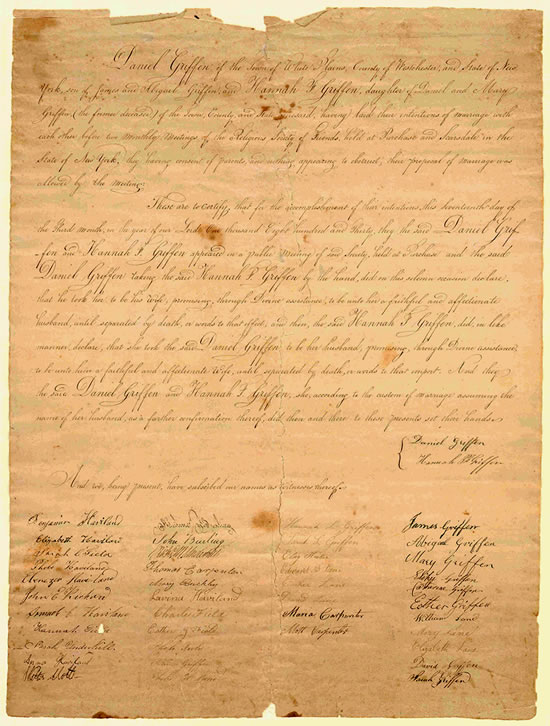 Daniel Griffen of the Town of White Plains, County of Westchester, and State of New
York, son of James and Abigail Griffen, and Hannah F Griffen, daughter of Daniel and Mary
Griffen (the former deceased) of the Town, County, and State aforesaid, having laid their intentions of marriage with
each other before two Monthly Meetings of the Religious Society of Friends, held at Purchase and Scarsdale in the
State of New York, they having consent of parents, and nothing appearing to obstruct, their proposal of Marriage was
allowed by the meeting.
These are to certify, that for the accomplishment of their intentions, this seventeenth day of
the Third month, in the year of our Lord One thousand Eight hundred and thirty, they the said Daniel Grif-
fen and Hannah F. Griffen appeared in a public meeting of said Society, held at Purchase and the said
Daniel Griffen taking the said Hannah F Griffen by the hand, did on this solemn occasion declare,
that he took her to be his Wife, promising, through Divine assistance, to be unto her a faithful and affectionate
husband, until separated by death, or words to that effect, and then, the said Hannah F. Griffen, did, in like
manner, declare, that she took the said Daniel Griffen to be her husband, promising, through Divine assistance,
to be unto him a faithful and affectionate Wife, until separated by death, or words to that import. And they
the said Daniel Griffen and Hannah F Griffen, she, according to the custom of marriage assuming the
name of her husband, as a further confirmation thereof, did then and there to these presents set their hands
Daniel Griffen
Hannah Griffen
And we, being present, have subscribed our names as witnesses hereof.
Benjamin Haviland
Elizabeth Haviland
Sarah Field
Phebe Haviland
Ebenezer Haviland
John C Haviland
Samuel Haviland
Hannah Field
Underhill
Anna
Mott
John Burling
Thomas Carpenter
Mary
Lavina Haviland
Charles Field
Esther Field
Griffen
Hannah Griffen
Maria Carpenter
Mott Carpenter
James Griffen
Abigail Griffen
Mary Griffen
Griffen
Catharine Griffen
Esther Griffen
William Lane
Mary Lane
Elizabeth Lane
David Griffen
Griffen